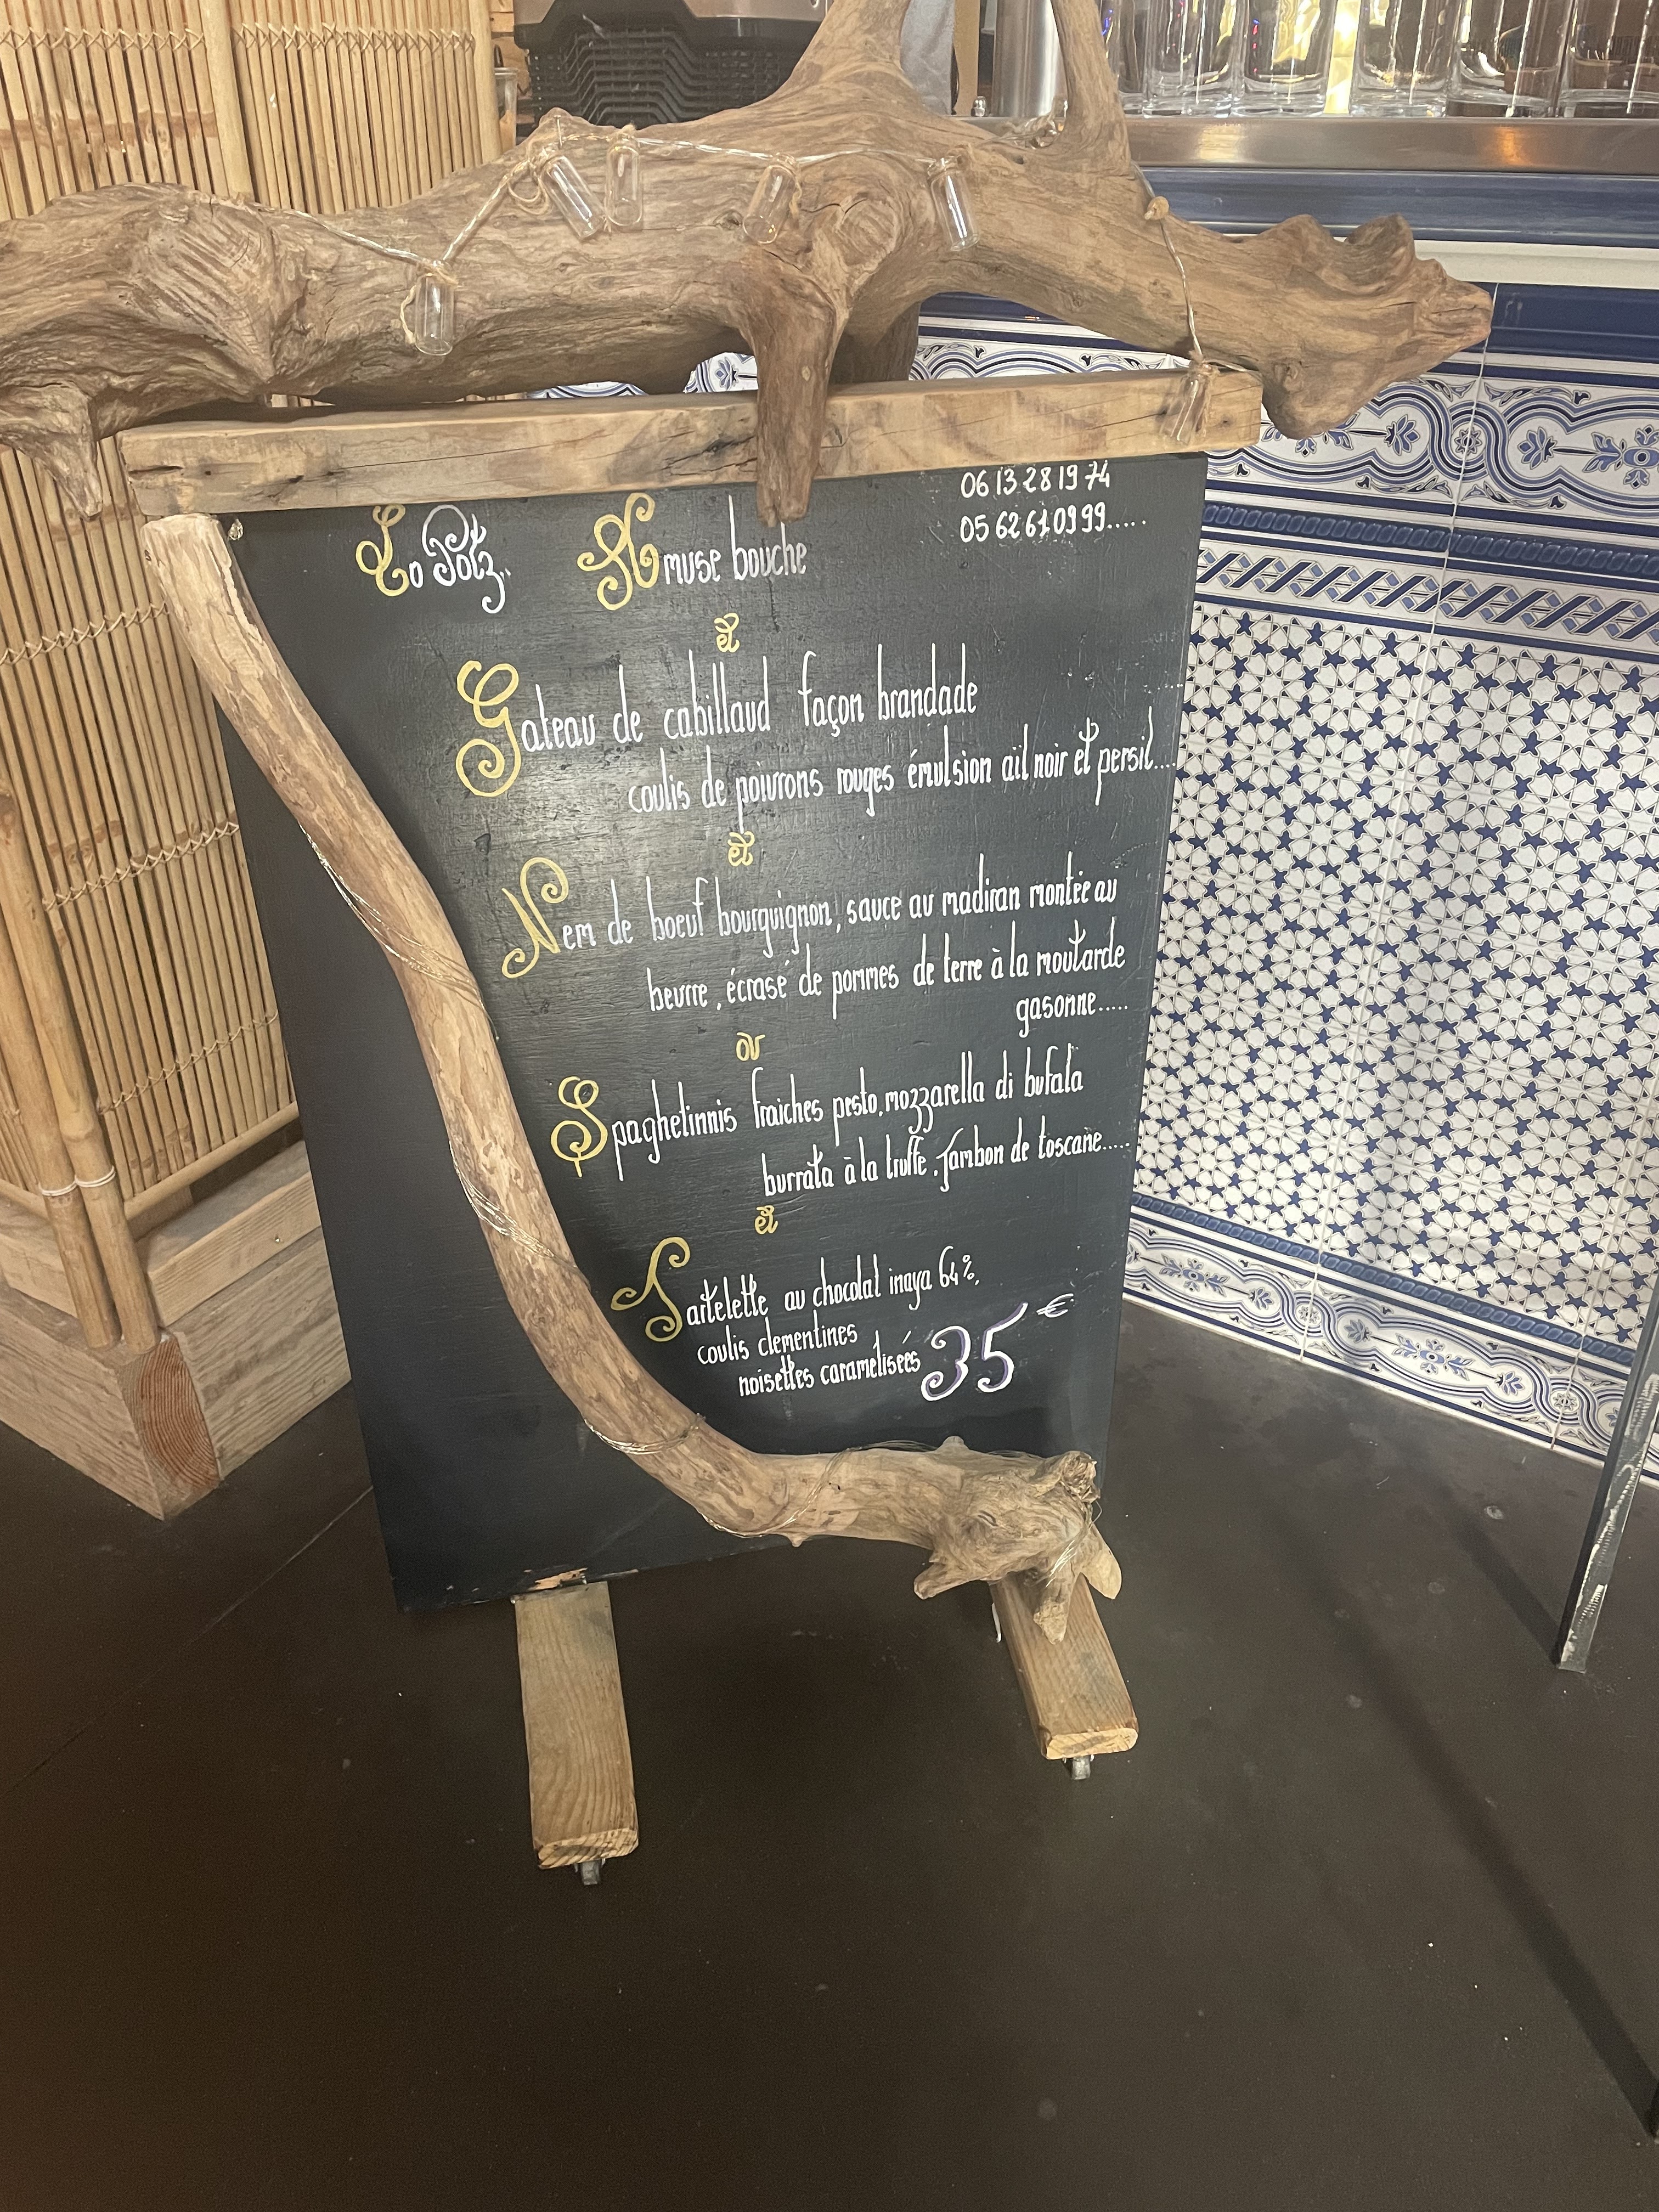 06 13 28 19 74
05 62 61 09 99.....
Lo Potz..
Amuse bouche
et
Gateau de cabillaud façon brandade
coulis de poivrons rouges émulsion ail noir et persil....
et
Nem de boeuf bourguignon, sauce au madiran montée au
beurre, écrasé de pommes de terre à la moutarde
gasonne.....
ou
Spaghetinnis fraiches pesto, mozzarella di bufala
burrata à la truffe, jambon de toscane.....
et
Tartelette au chocolat inaya 64%,
coulis clementines
noisettes caramelisées 35€